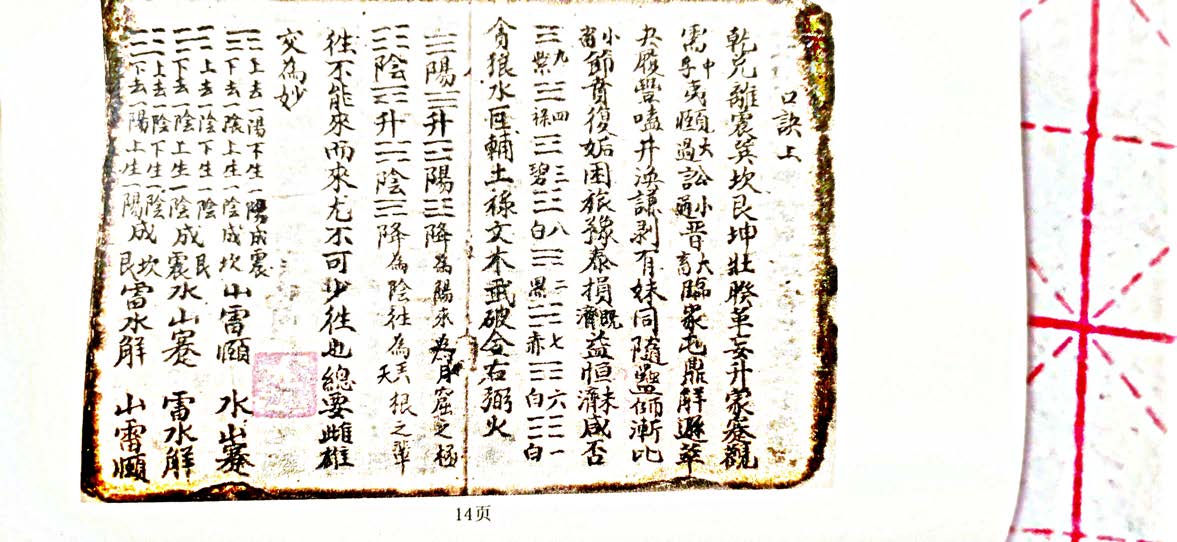 口訣上
乾兑離震巽坎艮坤壯睽革妄升蒙蹇觀
需中孚夷頤大過訟小過晋大畜臨家屯鼎解遯萃
夬履豐嗑井渙謙剥有妹同隨蠱師漸比
小畜節賁復姤困旅豫泰損既濟益恒未濟咸否
九紫四祿三碧八白二黑七赤六白一白
貪狼水巨輔土祿文木武破金右弼火
陽升陽降為陽來為月窟之極
陰升陰降為陰徃為天根之
徃不能來而來尤不可少徃也總要雌雄
交為妙
上去一陽下生一陽成震
下去一陰上生一陰成坎 山雷頤 水山蹇
上去一陰下生一陰 艮
下去一陰上生一陰成震 水山蹇 雷水解
上去一陰下生一陰 坎
下去一陽上生一陽成艮 雷水解 山雷頤
14页